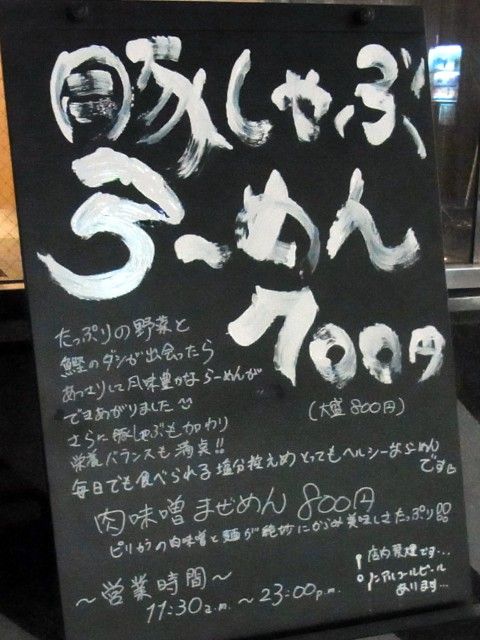 豚しゃぶ
らーめん
700円
(大盛800円)
たっぷりの野菜と
鰹のダシが出会ったら
あっさりして風味豊かならーめんが
できあがりました
さらに豚しゃぶも加わり
栄養バランスも満点!!
毎日でも食べられる塩分控えめとってもヘルシーならーめん
です
肉味噌まぜめん 800円
ピリカラの肉味噌と麺が絶妙にからみ美味しさたっぷり!!
〜営業時間〜
11:30a.m. 〜 23:00p.m.
店内禁煙です…
ノンアルコールビール
あります…